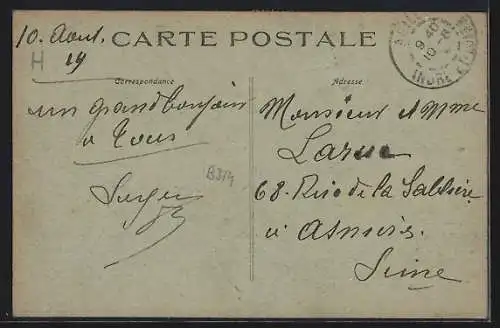 10. Aout.
19
H
CARTE POSTALE
Correspondance
un grand bonjour
a tous
Serge
B3/4
Adresse
Monsieur et Mme
Larue
68. Rue de la Sablière
à Asnières
Seine
9 40
10 - 8
INDRE